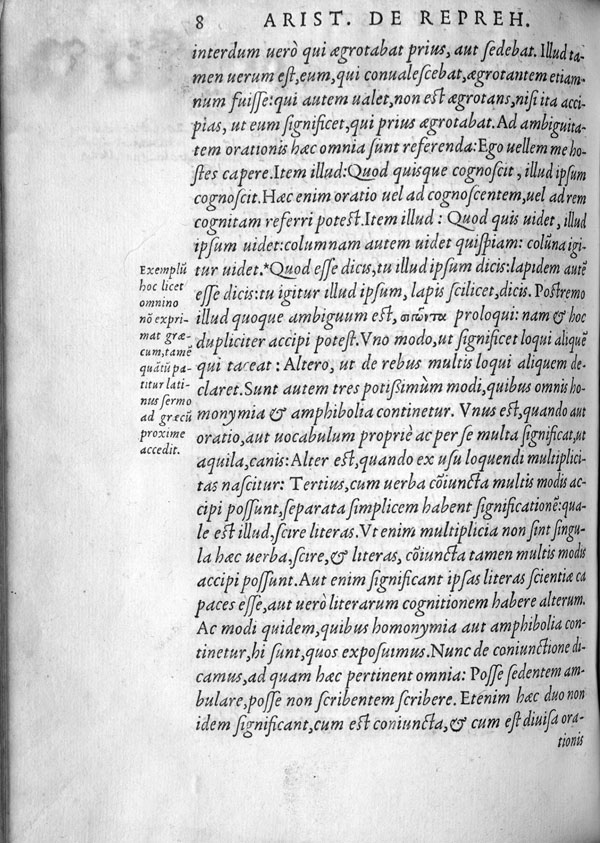 8 ARIST. DE REPREH.
interdum uerò qui ægrotabat prius, aut sedebat. Illud ta-
men uerum est, eum, qui conualescebat, ægrotantem etiam-
num fuisse: qui autem ualet, non est ægrotans, nisi ita acci
pias, ut eum significet, qui prius ægrotabat. Ad ambiguita-
tem orationis hæc omnia sunt referenda: Ego uellem me ho-
stes capere. Item illud: Quod quisque cognoscit, illud ipsum
cognoscit. Hæc enim oratio uel ad cognoscentem, uel ad rem
cognitam referri potest. Item illud: Quod quis uidet, illud
ipsum uidet: columnam autem uidet quispiam: colūna igi-
tur uidet.*Quod esse dicis, tu illud ipsum dicis: lapidem autē
esse dicis: tu igitur illud ipsum, lapis scilicet, dicis. Postremo
illud quoque ambiguum est, σιτῶντα proloqui: nam & hoc
dupliciter accipi potest. Vno modo, ut significet loqui aliquē
qui taceat: Altero, ut de rebus multis loqui aliquem de-
claret. Sunt autem tres potißimùm modi, quibus omnis ho-
monymia & amphibolia continetur. Vnus est, quando aut
oratio, aut uocabulum propriè ac per se multa significat, ut
aquila, canis: Alter est, quando ex usu loquendi multiplici-
tas nascitur: Tertius, cum uerba cōiuncta multis modis ac-
cipi possunt, separata simplicem habent significationē: qua-
le est illud, scire literas. Vt enim multiplicia non sint singu-
la hæc uerba, scire, & literas, cōiuncta tamen multis modis
accipi possunt. Aut enim significant ipsas literas scientiæ ca
paces esse, aut uerò literarum cognitionem habere alterum.
Ac modi quidem, quibus homonymia aut amphibolia con-
tinetur, hi sunt, quos exposuimus. Nunc de coniunctione di-
camus, ad quam hæc pertinent omnia: Posse sedentem am-
bulare, posse non scribentem scribere. Etenim hæc duo non
idem significant, cum est coniuncta, & cum est diuisa ora-
tionis
Exemplū
hoc licet
omnino
nō expri-
mat græ-
cum, tamē
quātū pa-
titur lati-
nus sermo
ad græcū
proxime
accedit.